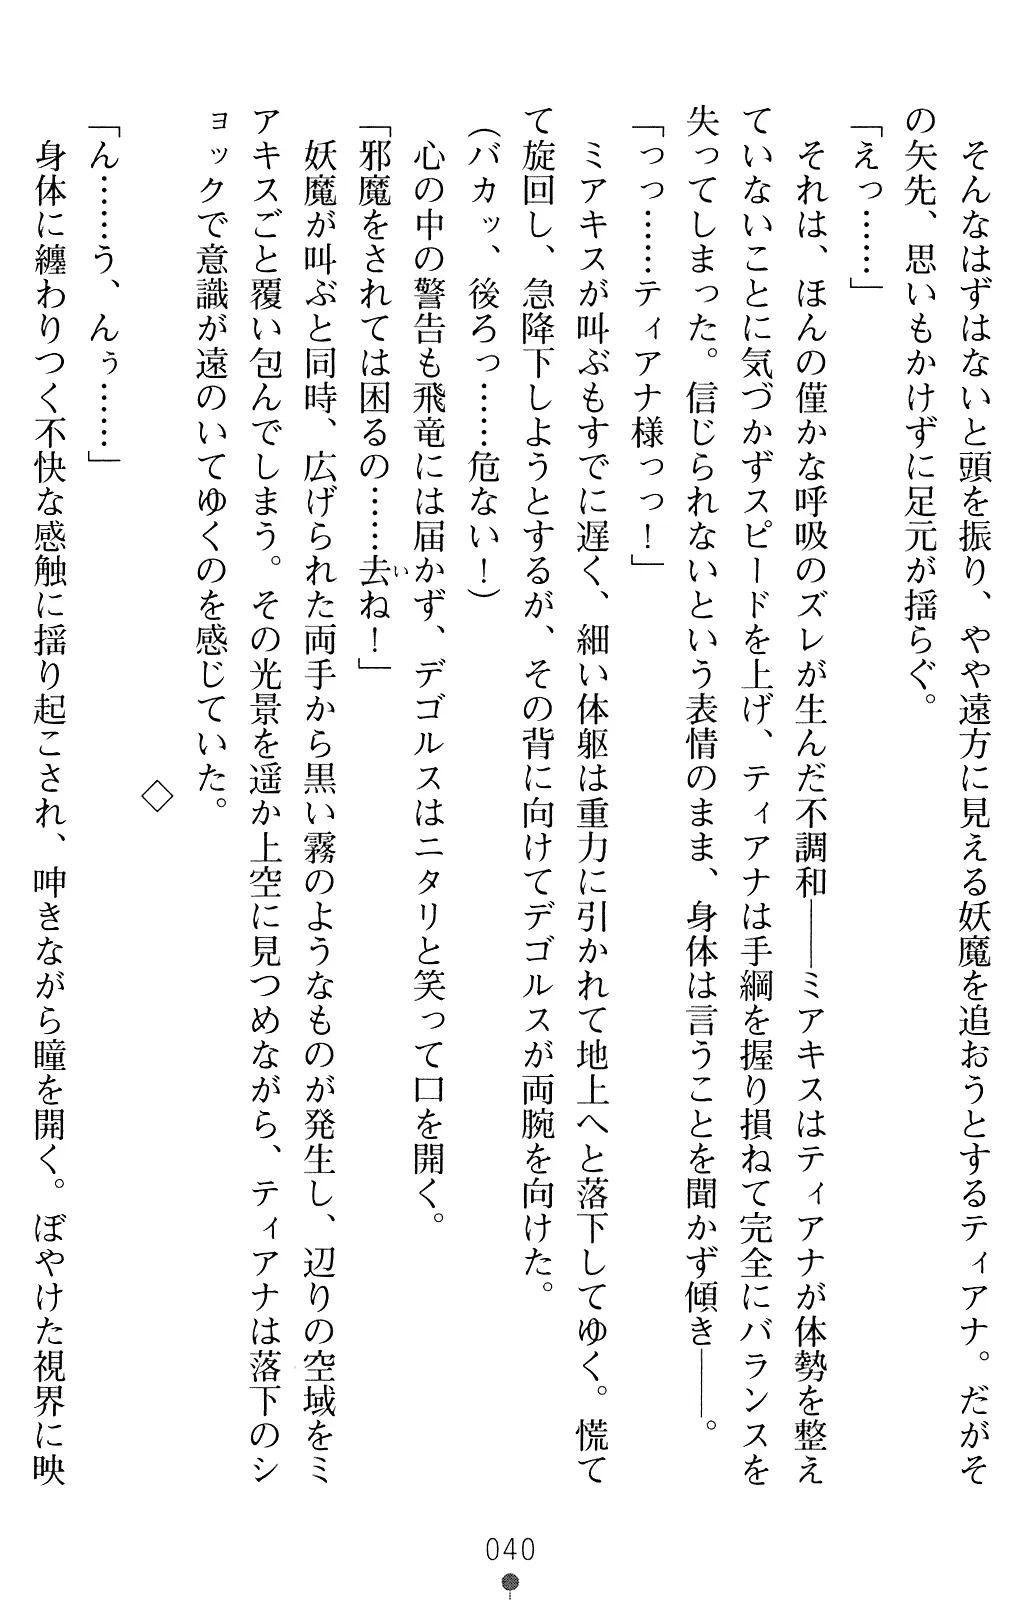 そんなはずはないと頭を振り、やや遠方に見える妖魔を追おうとするティアナ。だがそ
の矢先、思いもかけずに足元が揺らぐ。
「えっ……」
それは、ほんの僅かな呼吸のズレが生んだ不調和――ミアキスはティアナが体勢を整え
ていないことに気づかずスピードを上げ、ティアナは手綱を握り損ねて完全にバランスを
失ってしまった。信じられないという表情のまま、身体は言うことを聞かず傾き――。
「っっ……ティアナ様っっ！」
ミアキスが叫ぶもすでに遅く、細い体躯は重力に引かれて地上へと落下してゆく。慌て
て旋回し、急降下しようとするが、その背に向けてデゴルスが両腕を向けた。
（バカッ、後ろっ……危ない！）
心の中の警告も飛竜には届かず、デゴルスはニタリと笑って口を開く。
「邪魔をされては困るの……去ね！」
い
妖魔が叫ぶと同時、広げられた両手から黒い霧のようなものが発生し、辺りの空域をミ
アキスごと覆い包んでしまう。その光景を遥か上空に見つめながら、ティアナは落下のシ
ョックで意識が遠のいてゆくのを感じていた。
◇
「ん……う、んぅ……」
身体に纏わりつく不快な感触に揺り起こされ、呻きながら瞳を開く。ぼやけた視界に映
040